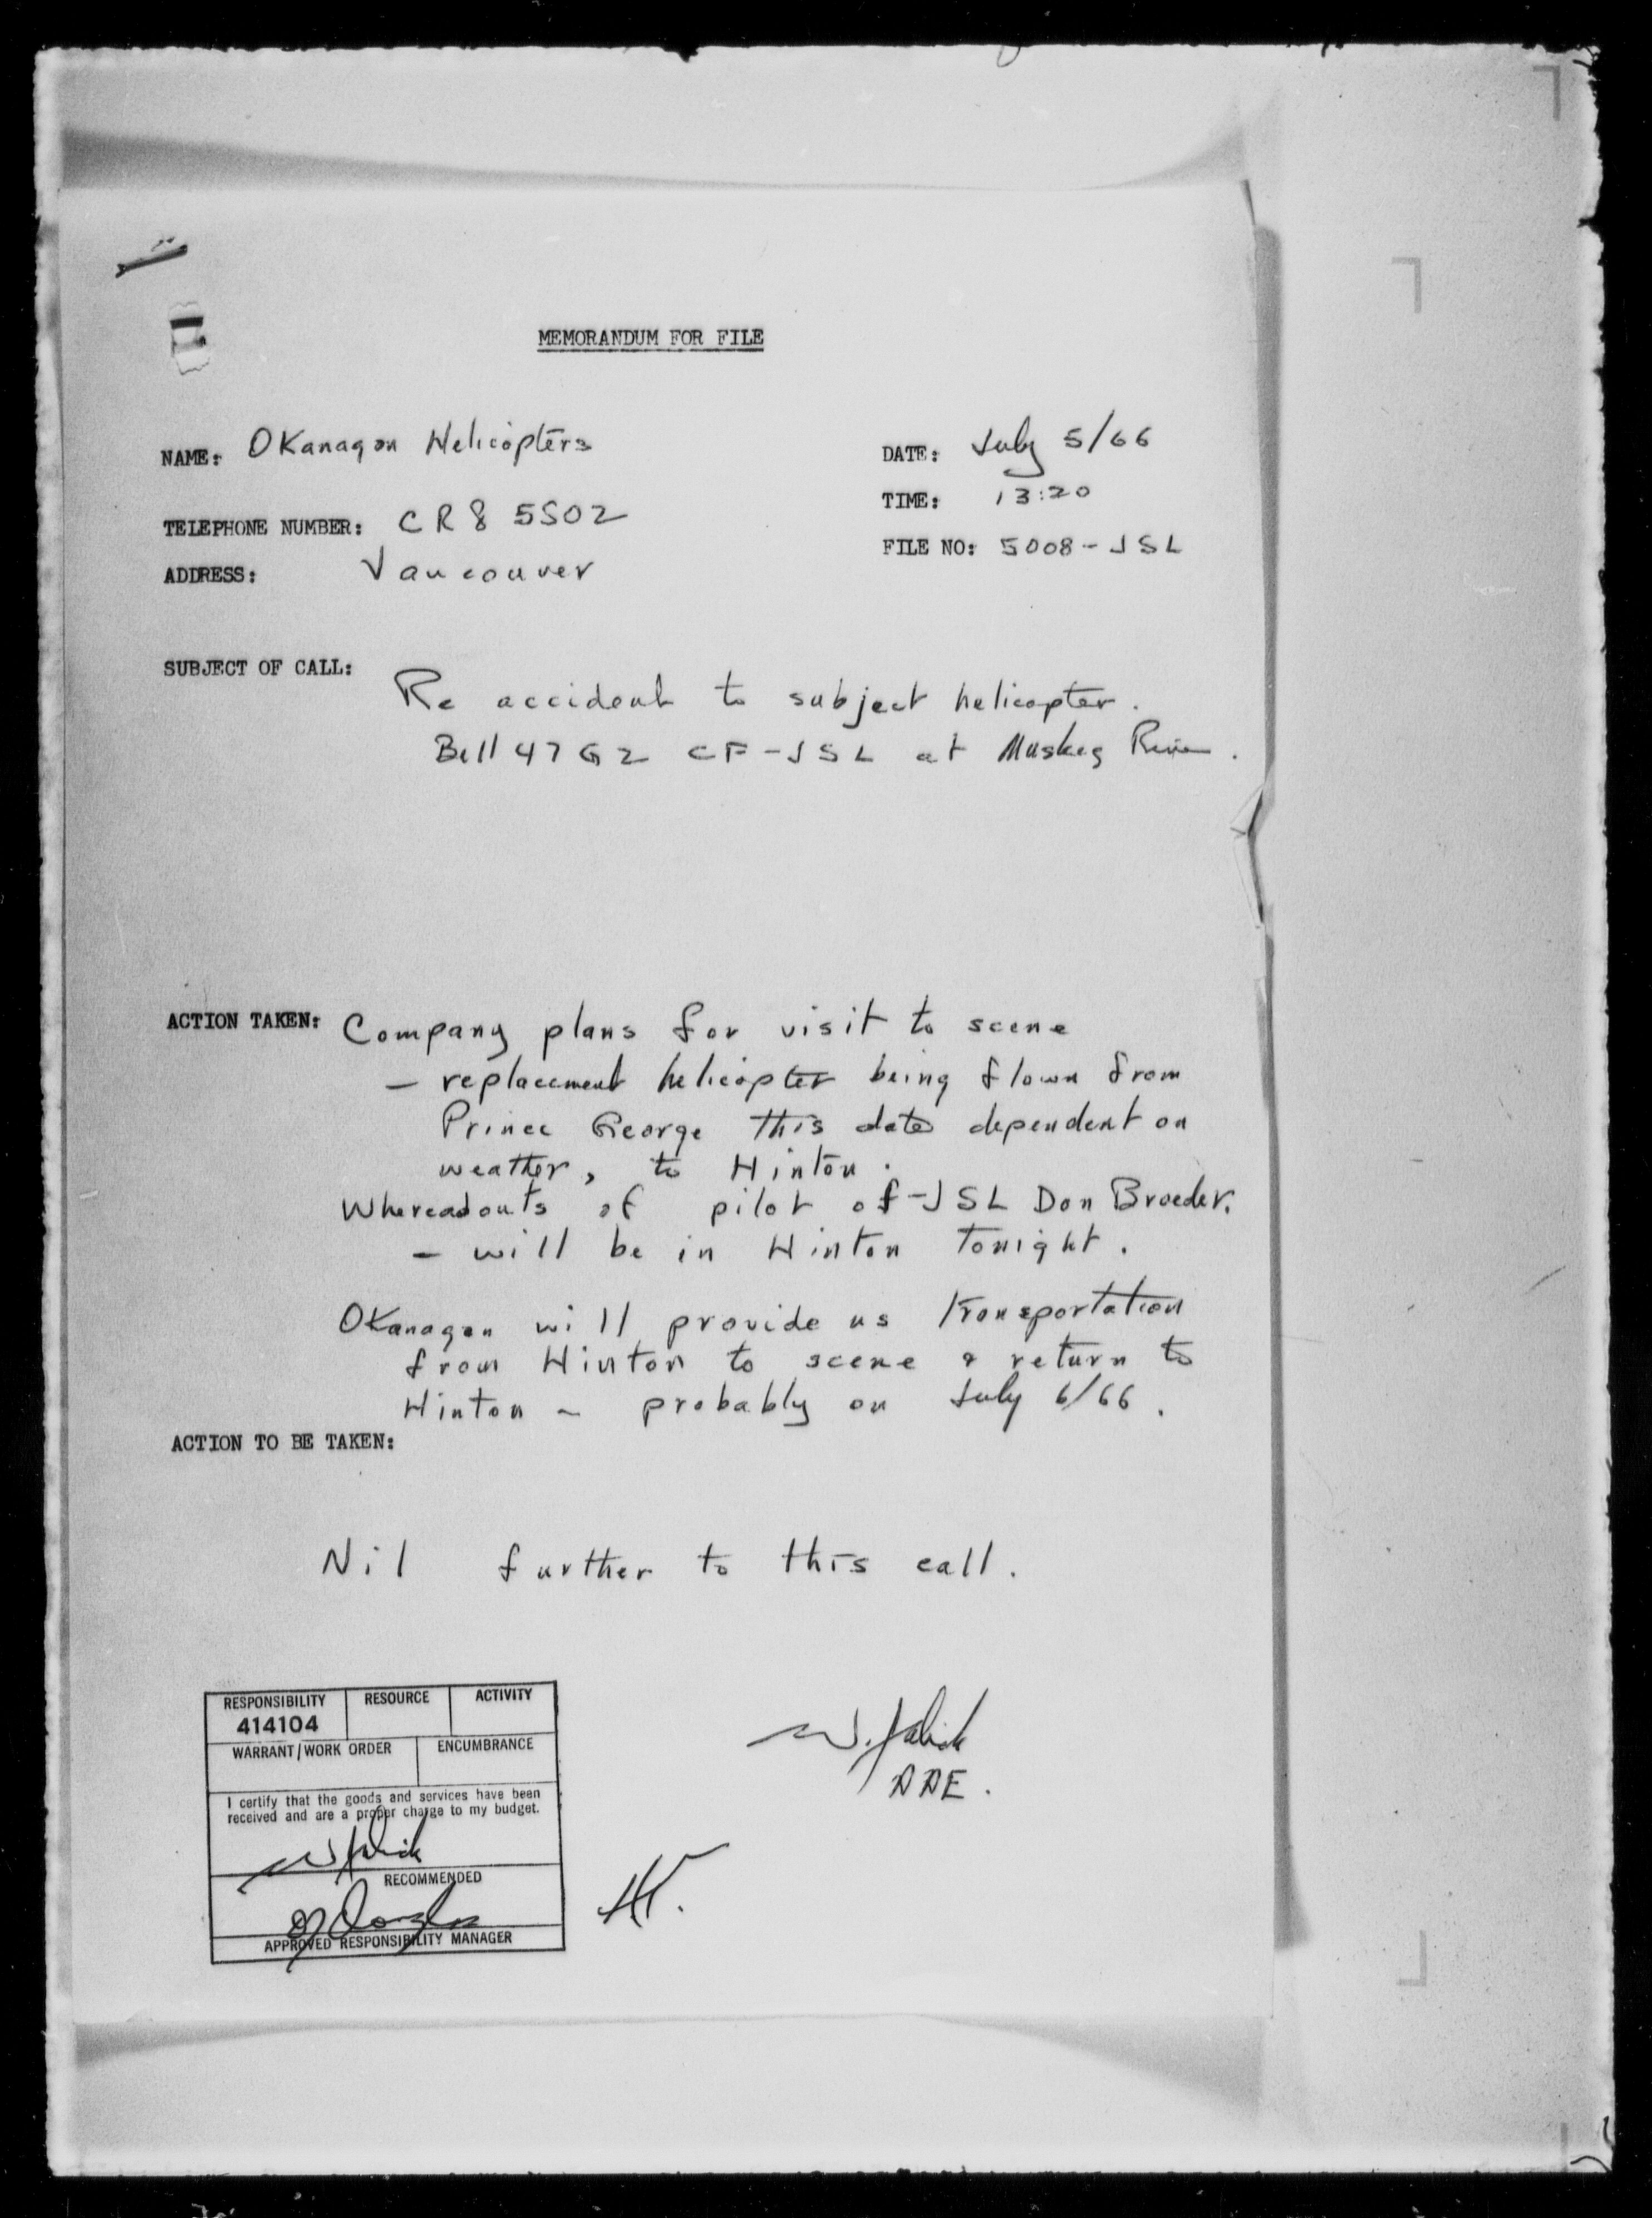 MEMORANDUM FOR FILE
NAME: OKanagan Helicopters
DATE: July 5/66
TIME: 13:20
TELEPHONE NUMBER: CR8 5502
FILE NO: 5008-JSL
ADDRESS: Vancouver
SUBJECT OF CALL:
Re accident to subject helicopter.
Bell 47G2 CF-JSL at Muskeg River.
ACTION TAKEN: Company plans for visit to scene
- replacement helicopter being flown from
Prince George this date dependent on
weather, to Hinton.
Whereabouts of pilot of -JSL Don Broeder.
- will be in Hinton tonight.
OKanagan will provide us transportation
from Hinton to scene & return to
Hinton - probably on July 6/66.
ACTION TO BE TAKEN:
Nil further to this call.
RESPONSIBILITY RESOURCE ACTIVITY
414104
WARRANT/WORK ORDER ENCUMBRANCE
I certify that the goods and services have been
received and are a proper charge to my budget.
RECOMMENDED
APPROVED RESPONSIBILITY MANAGER
W.